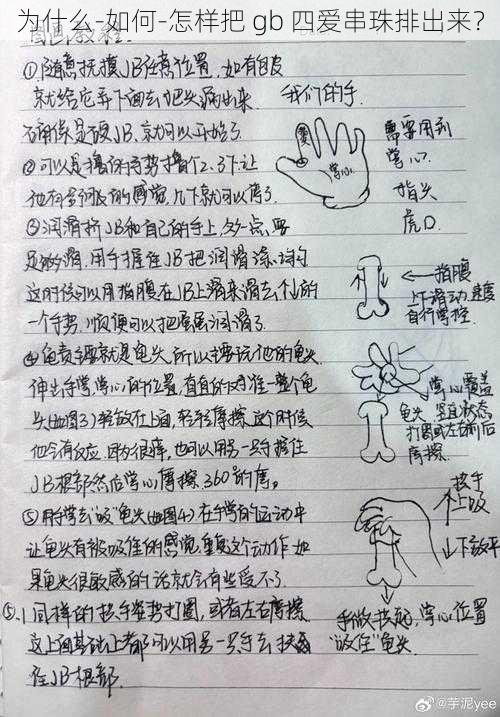 为什么-如何-怎样把 gb 四爱串珠排出来?
①随意抚摸JB任意位置,如有包皮
就给它弄下面去,把头漏出来.
石确保是硬JB,就可以开始了.
我们的手.
掌心
需要用到
掌心.
指头
虎口.
②可以是撸的姿势撸个2、3下,让
他有舒服的感觉,几下就可以停了.
③润滑挤JB和自己的手上,多一点,要
足够滑,用手握住JB把润滑涂均匀
这时候可以用指腹在JB上滑来滑去,个人的
一个手势,顺便可以把尾尾润滑了.
←指腹
上下滑动,速度
自行掌控.
④龟责主要就是龟头,所以主要玩他的龟头
伸出手掌,掌心的位置,直直的对准一整个龟
头(如图3)轻放在上面,轻轻摩擦,这个时候
他会有反应,因为很痒,也可以用另一只手握住
JB根部然后掌心摩擦360°的磨。
掌心覆盖
龟头,竖直状态
打圈或左右前后
摩擦.
⑤用手掌去"吸"龟头(如图4)在手掌的运动中
让龟头有被吸住的感觉,重复这个动作,如
果龟头很敏感的话就会有些受不了.
拔手
上吸
↓下放平
⑤.1 同样的拔手姿势打圈,或者左右摩擦
这上面基础上都可以用另一只手去扶
住JB根部.
手微拱起,掌心位置
"吸住"龟头.
@芋泥yee